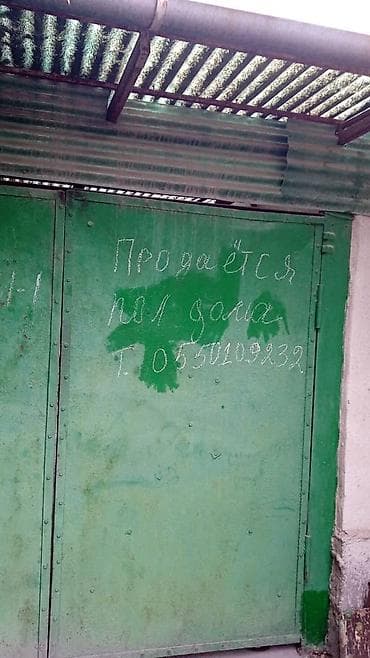 Продаётся
пол дома
Т. 0550109232
1-1